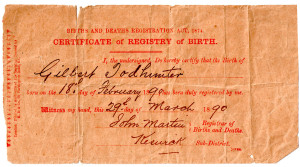 BIRTHS AND DEATHS REGISTRATION ACT, 1874.
CERTIFICATE OF REGISTRY OF BIRTH.
I, the undersigned, Do hereby certify that the Birth of
Gilbert Todhunter
born on the 18th day of February 90 has been duly registered by me
Witness my hand, this 29th day of March 1890
John Martin Registrar of
Births and Deaths
Keswick Sub-District.